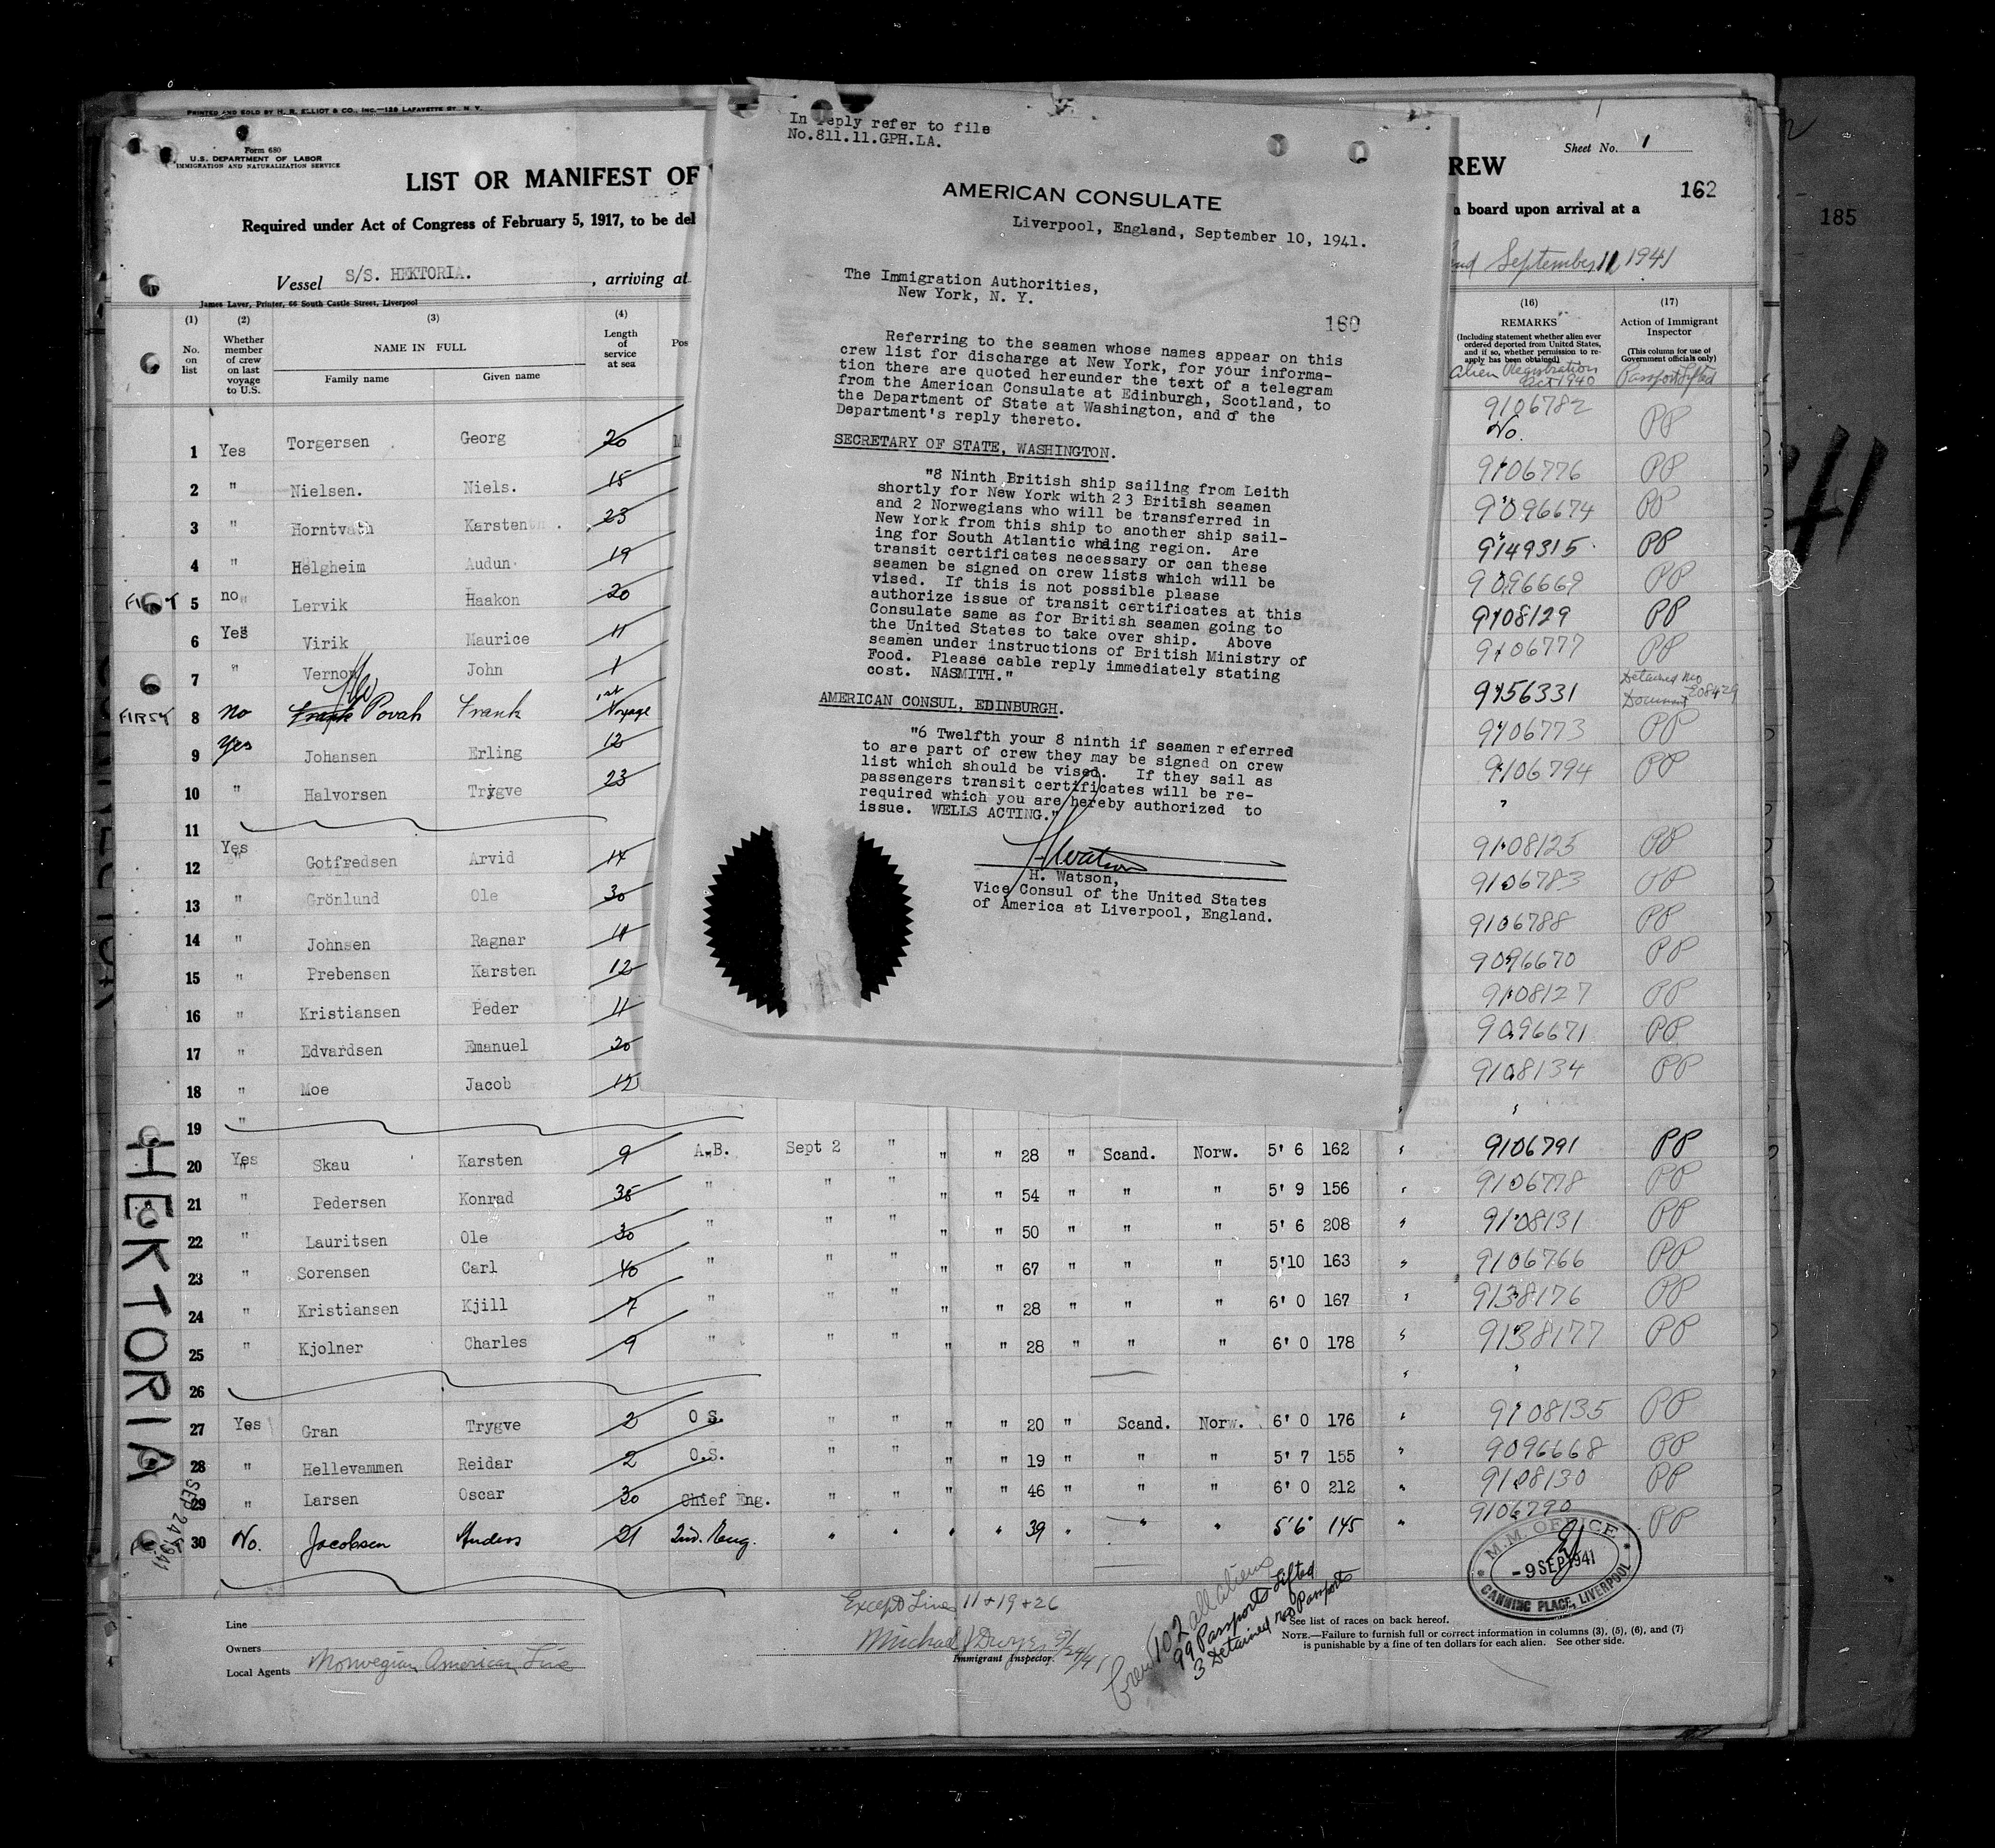 PRINTED AND SOLD BY H. R. ELLIOT & CO., INC.—129 LAFAYETTE ST., N. Y.
Form 680
U.S. DEPARTMENT OF LABOR
IMMIGRATION AND NATURALIZATION SERVICE
LIST OR MANIFEST OF
Required under Act of Congress of February 5, 1917, to be del
Vessel S/S. HEKTORIA. , arriving at
James Laver, Printer, 66 South Castle Street, Liverpool
Sheet No. 1
REW
162
185
board upon arrival at a
September 11, 1941
(1) No. on list
(2) Whether member of crew on last voyage to U.S.
(3) NAME IN FULL
Family name Given name
(4) Length of service at sea
Pos
(16) REMARKS
(Including statement whether alien ever ordered deported from United States, and if so, whether permission to reapply has been obtained)
Alien Registration Act 1940
(17) Action of Immigrant Inspector
(This column for use of Government officials only)
Passport Lifted
In reply refer to file
No.811.11.GPH.LA.
AMERICAN CONSULATE
Liverpool, England, September 10, 1941.
The Immigration Authorities,
New York, N. Y.
160
Referring to the seamen whose names appear on this
crew list for discharge at New York, for your informa-
tion there are quoted hereunder the text of a telegram
from the American Consulate at Edinburgh, Scotland, to
the Department of State at Washington, and of the
Department's reply thereto.
SECRETARY OF STATE, WASHINGTON.
"8 Ninth British ship sailing from Leith
shortly for New York with 23 British seamen
and 2 Norwegians who will be transferred in
New York from this ship to another ship sail-
ing for South Atlantic whaling region. Are
transit certificates necessary or can these
seamen be signed on crew lists which will be
vised. If this is not possible please
authorize issue of transit certificates at this
Consulate same as for British seamen going to
the United States to take over ship. Above
seamen under instructions of British Ministry of
Food. Please cable reply immediately stating
cost. NASMITH."
AMERICAN CONSUL, EDINBURGH.
"6 Twelfth your 8 ninth if seamen referred
to are part of crew they may be signed on crew
list which should be vised. If they sail as
passengers transit certificates will be re-
required which you are hereby authorized to
issue. WELLS ACTING."
H. Watson,
Vice Consul of the United States
of America at Liverpool, England.
1 Yes Torgersen Georg 20 M 9106782 No. PP
2 " Nielsen. Niels. 15 9106776 PP
3 " Horntvath Karsten 23 9096674 PP
4 " Helgheim Audun 19 9149315 PP
FIRST 5 no Lervik Haakon 20 9096669 PP
6 Yes Virik Maurice 11 9108129 PP
7 " Vernon John 1 9106777 PP
FIRST 8 no Frank Povah Frank 1st Voyage 9156331 Detained No Document 208429
9 Yes Johansen Erling 12 9106773 PP
10 " Halvorsen Trygve 23 9106794 PP
11
12 Yes Gotfredsen Arvid 14 9108125 PP
13 " Grönlund Ole 30 9106783 PP
14 " Johnsen Ragnar 11 9106788 PP
15 " Prebensen Karsten 12 9096670 PP
16 " Kristiansen Peder 11 9108127 PP
17 " Edvardsen Emanuel 20 9096671 PP
18 " Moe Jacob 12 9108134 PP
19 "
20 Yes Skau Karsten 9 A.B. Sept 2 " " " 28 " Scand. Norw. 5' 6 162 9106791 PP
21 " Pedersen Konrad 35 " " " " " 54 " " " 5' 9 156 9106778 PP
22 " Lauritsen Ole 30 " " " " " 50 " " " 5' 6 208 9108131 PP
23 " Sorensen Carl 40 " " " " " 67 " " " 5'10 163 9106766 PP
24 " Kristiansen Kjill 7 " " " " " 28 " " " 6' 0 167 9138176 PP
25 " Kjolner Charles 9 " " " " " 28 " " " 6' 0 178 9138177 PP
26
27 Yes Gran Trygve 2 O S. " " " " 20 " Scand. Norw. 6' 0 176 9108135 PP
28 " Hellevammen Reidar 2 O.S. " " " " 19 " " " 5' 7 155 9096668 PP
29 " Larsen Oscar 30 Chief Eng. " " " " 46 " " " 6' 0 212 9108130 PP
30 No. Jacobsen Anders 21 2nd. Eng. " " " " 39 " " " 5'6" 145 " 9106790 PP
HEKTORIA
SEP 24 1941
M.M. OFFICE
- 9 SEP 1941
CANNING PLACE, LIVERPOOL
Except Lines 11+19+26
Michael J Dwyer 9/24/41
Immigrant Inspector
Crew 102 all aliens
99 Passports Lifted
3 Detained no Passports
Line
Owners
Local Agents Norwegian American Line
See list of races on back hereof.
NOTE.—Failure to furnish full or correct information in columns (3), (5), (6), and (7)
is punishable by a fine of ten dollars for each alien. See other side.